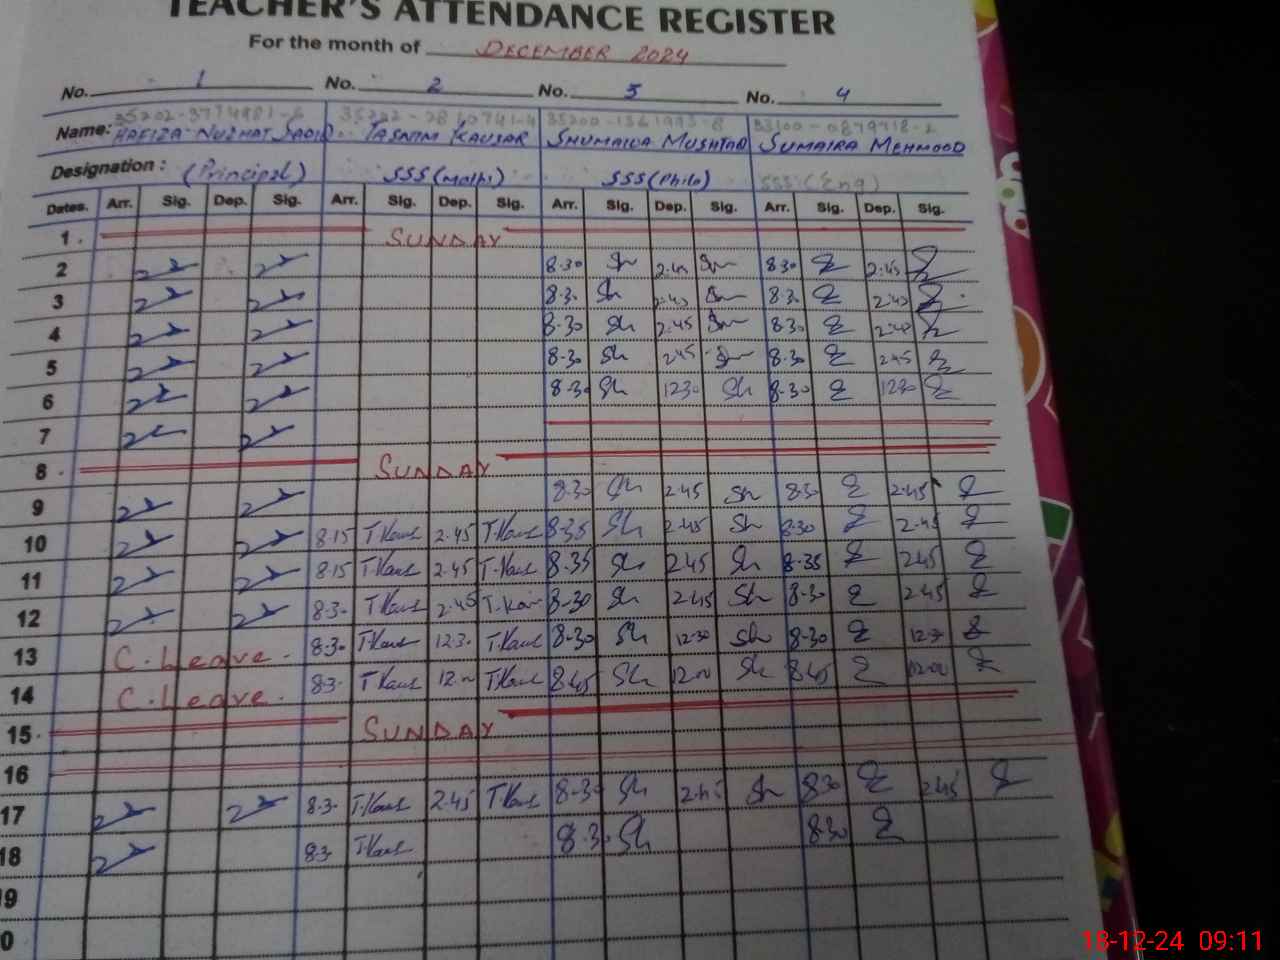 TEACHER'S ATTENDANCE REGISTER
For the month of DECEMBER 2024
No. 1 No. 2 No. 3 No. 4
Name: HAFIZA NUZHAT SADIQ TASNIM KAUSAR SHUMAILA MUSHTAQ SUMAIRA MEHMOOD
Designation : (Principal) SSS (Maths) SSS (Philo) SSS (Eng)
Dates. Arr. Sig. Dep. Sig. Arr. Sig. Dep. Sig. Arr. Sig. Dep. Sig. Arr. Sig. Dep. Sig.
1 SUNDAY
2 8-30 Sh 2.45 Sh 8.30 2.45
3 8-30 Sh 2.45 Sh 8.30 2.45
4 8-30 Sh 2.45 Sh 8-30 2.45
5 8-30 Sh 2.45 Sh 8-30 2.45
6 8-30 Sh 12.30 Sh 8-30 12.30
7
8 SUNDAY
9 8.30 Sh 2.45 Sh 8.30 2.45
10 8.15 T.Kaus 2.45 T.Kaus 8-35 Sh 2.45 Sh 8.30 2.45
11 8.15 T.Kaus 2.45 T.Kaus 8-35 Sh 2.45 Sh 8-35 2.45
12 8.30 T.Kaus 2.45 T.Kaus 8-30 Sh 2.45 Sh 8-30 2.45
13 C. Leave. 8.30 T.Kaus 12.30 T.Kaus 8-30 Sh 12.30 Sh 8-30 12.30
14 C. Leave. 8.30 T.Kaus 12.00 T.Kaus 8.45 Sh 12.00 Sh 8.45 12.00
15 SUNDAY
16
17 8.30 T.Kaus 2.45 T.Kaus 8-30 Sh 2.45 Sh 8.30 2.45
18 8.30 T.Kaus 8.30 Sh 8.30
9
0
18-12-24 09:11